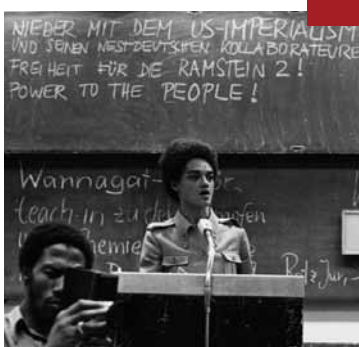 NIEDER MIT DEM US-IMPERIALISM
UND SEINEN WESTDEUTSCHEN KOLLABORATEURE
FREIHEIT FÜR DIE RAMSTEIN 2!
POWER TO THE PEOPLE!
Wannagat-
teach-in zu den
Chemie